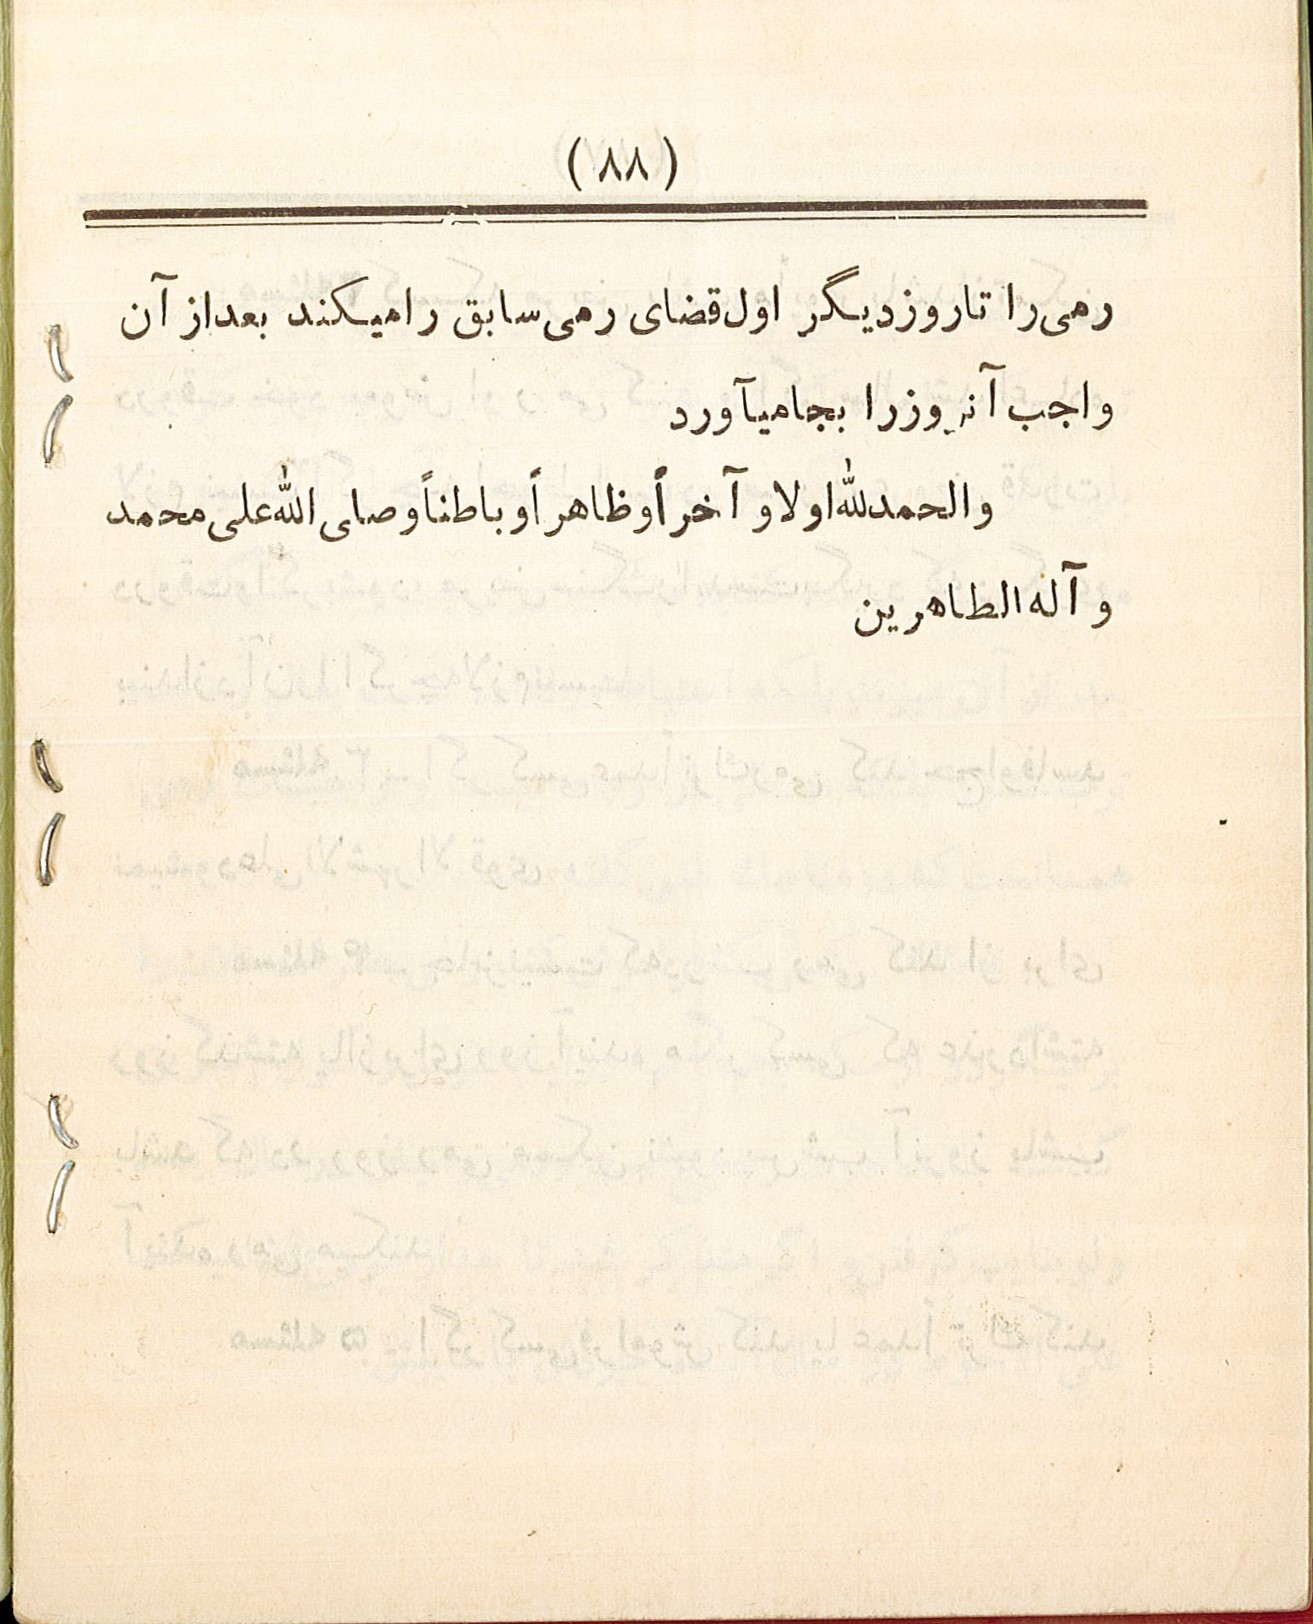 (٨٨)
رمی را تا روز دیگر اول قضای رمی سابق را میکند بعد از آن
واجب آنروز را بجا میآورد
و الحمدلله اولا و آخراً و ظاهراً و باطناً و صلی الله علی محمد
و آله الطاهرین